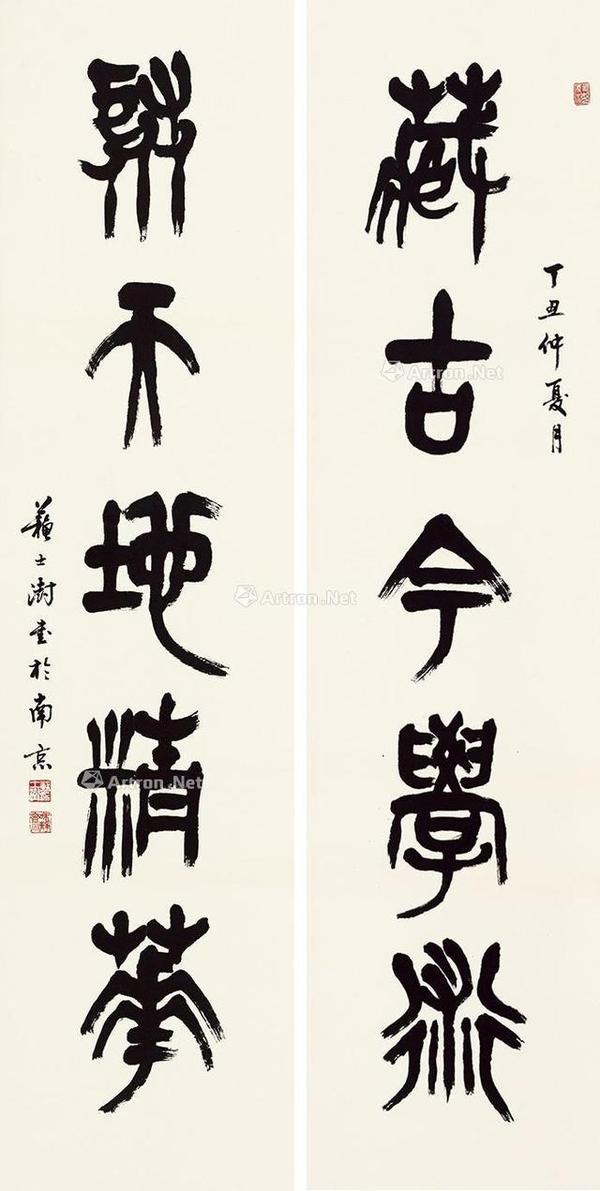 丁丑仲夏月
藏古今學術
聚天地清華
蘇士澍書於南京
Artron.Net
Artron.Net
Artron.Net
Artron.Net
Artron.Net